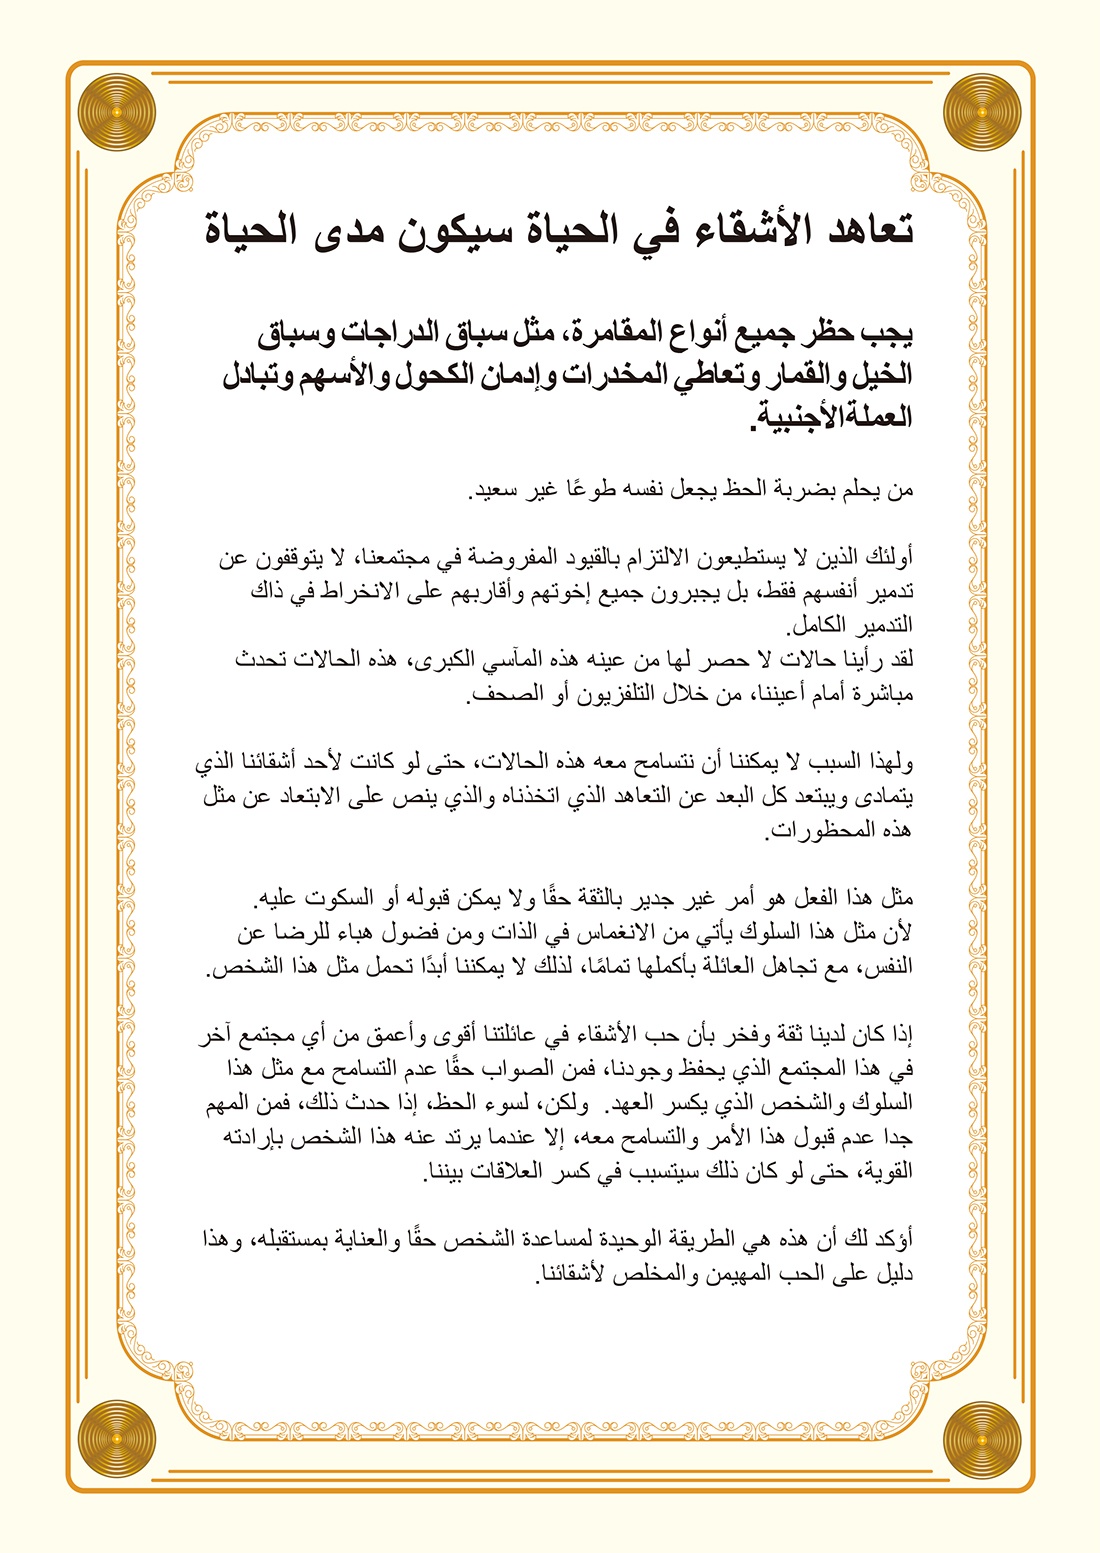 تعاهد الأشقاء في الحياة سيكون مدى الحياة
يجب حظر جميع أنواع المقامرة، مثل سباق الدراجات وسباق
الخيل والقمار وتعاطي المخدرات وإدمان الكحول والأسهم وتبادل
العملةالأجنبية.
من يحلم بضربة الحظ يجعل نفسه طوعًا غير سعيد.
أولئك الذين لا يستطيعون الالتزام بالقيود المفروضة في مجتمعنا، لا يتوقفون عن
تدمير أنفسهم فقط، بل يجبرون جميع إخوتهم وأقاربهم على الانخراط في ذاك
التدمير الكامل.
لقد رأينا حالات لا حصر لها من عينه هذه المآسي الكبرى، هذه الحالات تحدث
مباشرة أمام أعيننا، من خلال التلفزيون أو الصحف.
ولهذا السبب لا يمكننا أن نتسامح معه هذه الحالات، حتى لو كانت لأحد أشقائنا الذي
يتمادى ويبتعد كل البعد عن التعاهد الذي اتخذناه والذي ينص على الابتعاد عن مثل
هذه المحظورات.
مثل هذا الفعل هو أمر غير جدير بالثقة حقًا ولا يمكن قبوله أو السكوت عليه.
لأن مثل هذا السلوك يأتي من الانغماس في الذات ومن فضول هباء للرضا عن
النفس، مع تجاهل العائلة بأكملها تمامًا، لذلك لا يمكننا أبدًا تحمل مثل هذا الشخص.
إذا كان لدينا ثقة وفخر بأن حب الأشقاء في عائلتنا أقوى وأعمق من أي مجتمع آخر
في هذا المجتمع الذي يحفظ وجودنا، فمن الصواب حقًا عدم التسامح مع مثل هذا
السلوك والشخص الذي يكسر العهد.  ولكن، لسوء الحظ، إذا حدث ذلك، فمن المهم
جدا عدم قبول هذا الأمر والتسامح معه، إلا عندما يرتد عنه هذا الشخص بإرادته
القوية، حتى لو كان ذلك سيتسبب في كسر العلاقات بيننا.
أؤكد لك أن هذه هي الطريقة الوحيدة لمساعدة الشخص حقًا والعناية بمستقبله، وهذا
دليل على الحب المهيمن والمخلص لأشقائنا.